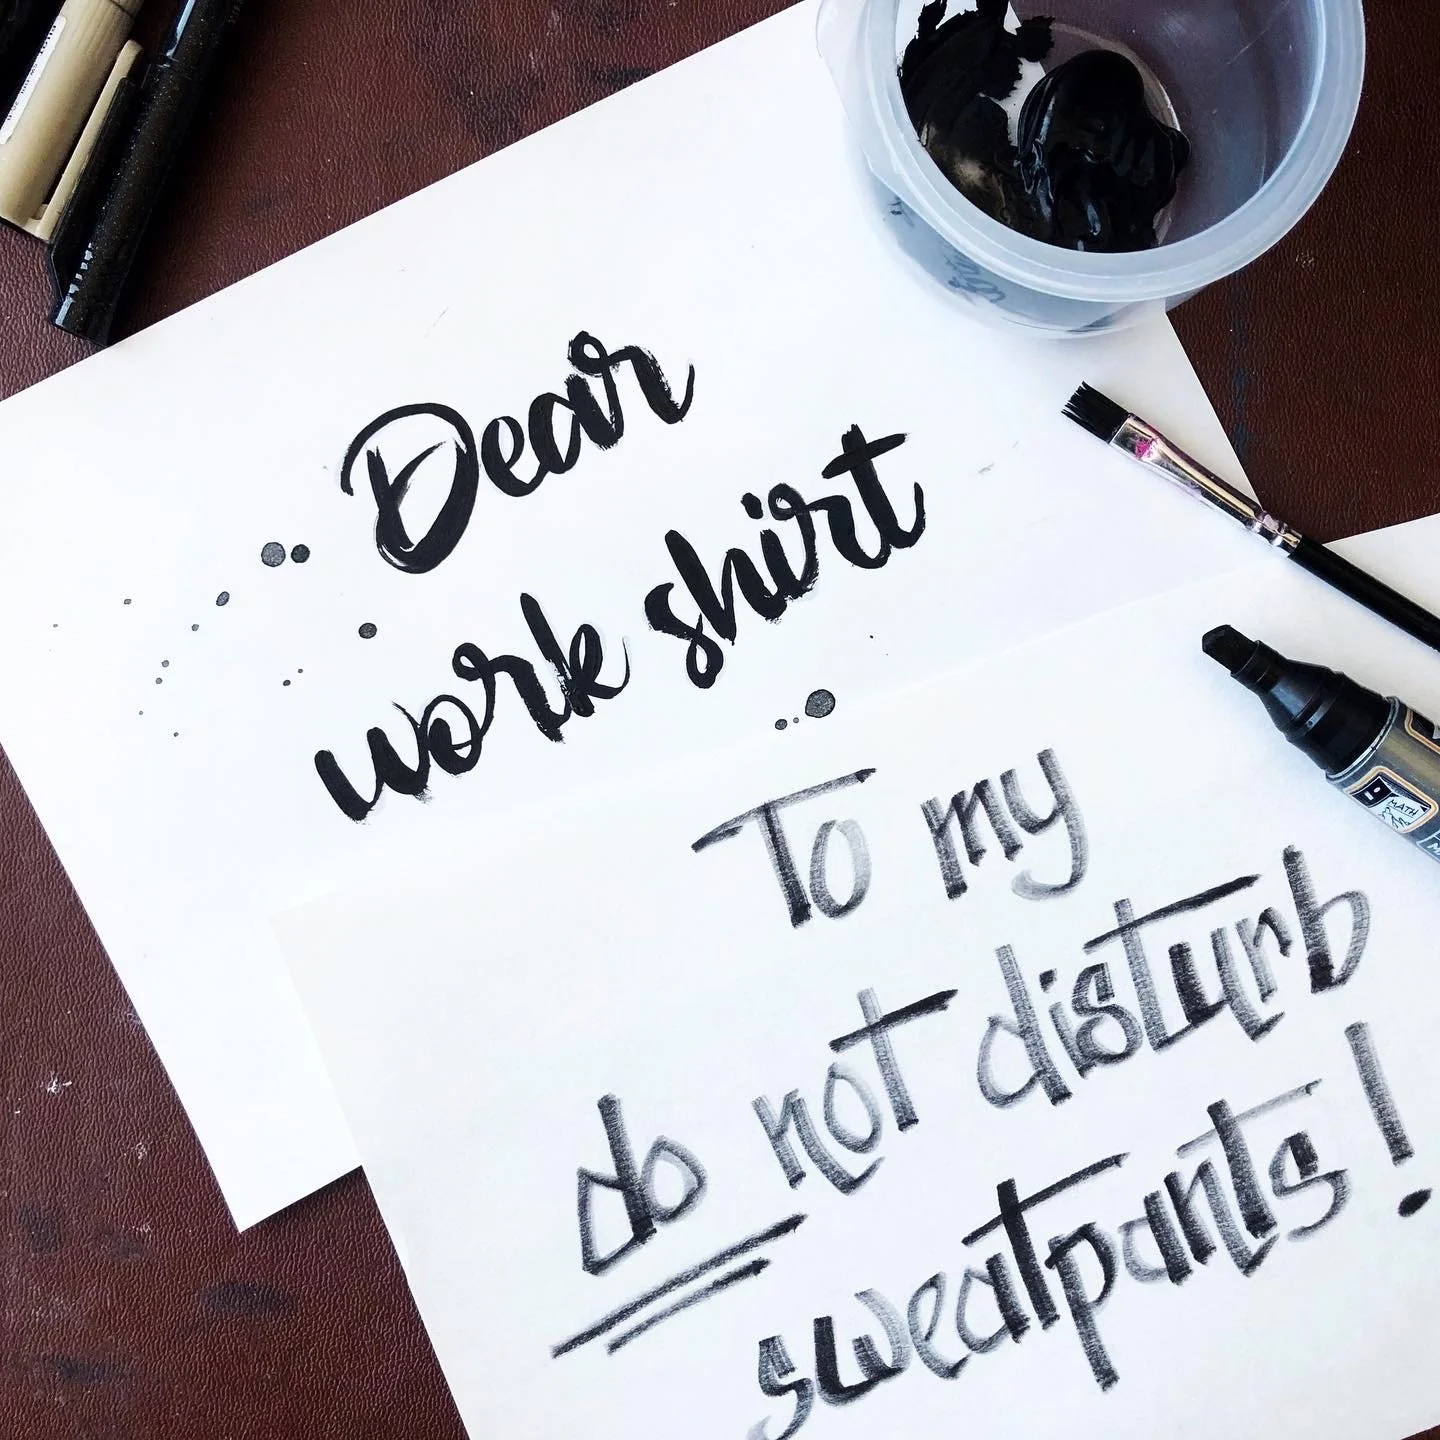 Dear
work shirt
To my
do not disturb
sweatpants!
MATH